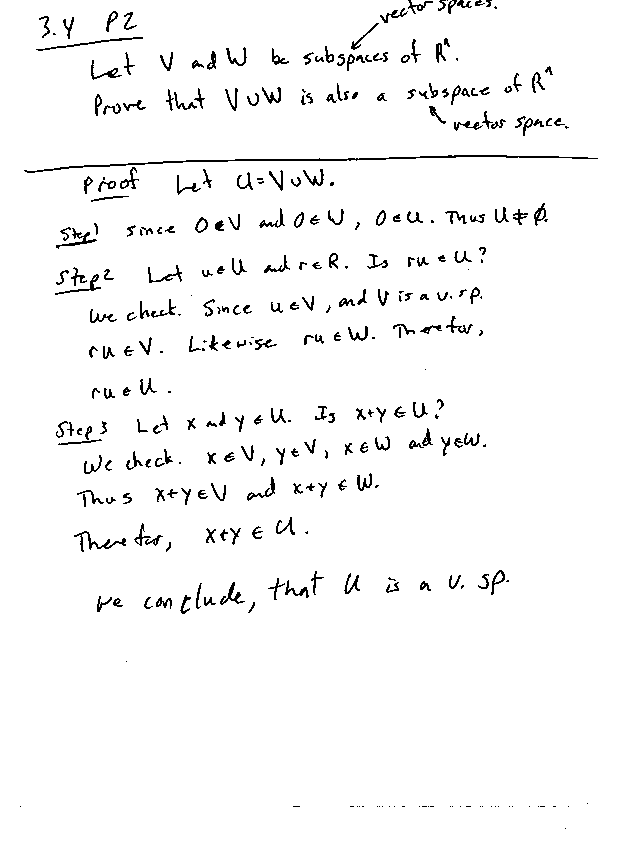 vector spaces.
3.4 P2
Let V and W be subspaces of Rⁿ.
Prove that V∪W is also a subspace of Rⁿ
vector space.
Proof Let U=V∪W.
Step1 Since 0∈V and 0∈W, 0∈U. Thus U≠∅.
Step2 Let u∈U and r∈R. Is ru∈U?
We check. Since u∈V, and V is a v.sp.
ru∈V. Likewise ru∈W. Therefor,
ru∈U.
Step3 Let x and y∈U. Is x+y∈U?
We check. x∈V, y∈V, x∈W and y∈W.
Thus x+y∈V and x+y∈W.
Therefor, x+y∈U.
We conclude, that U is a v. sp.